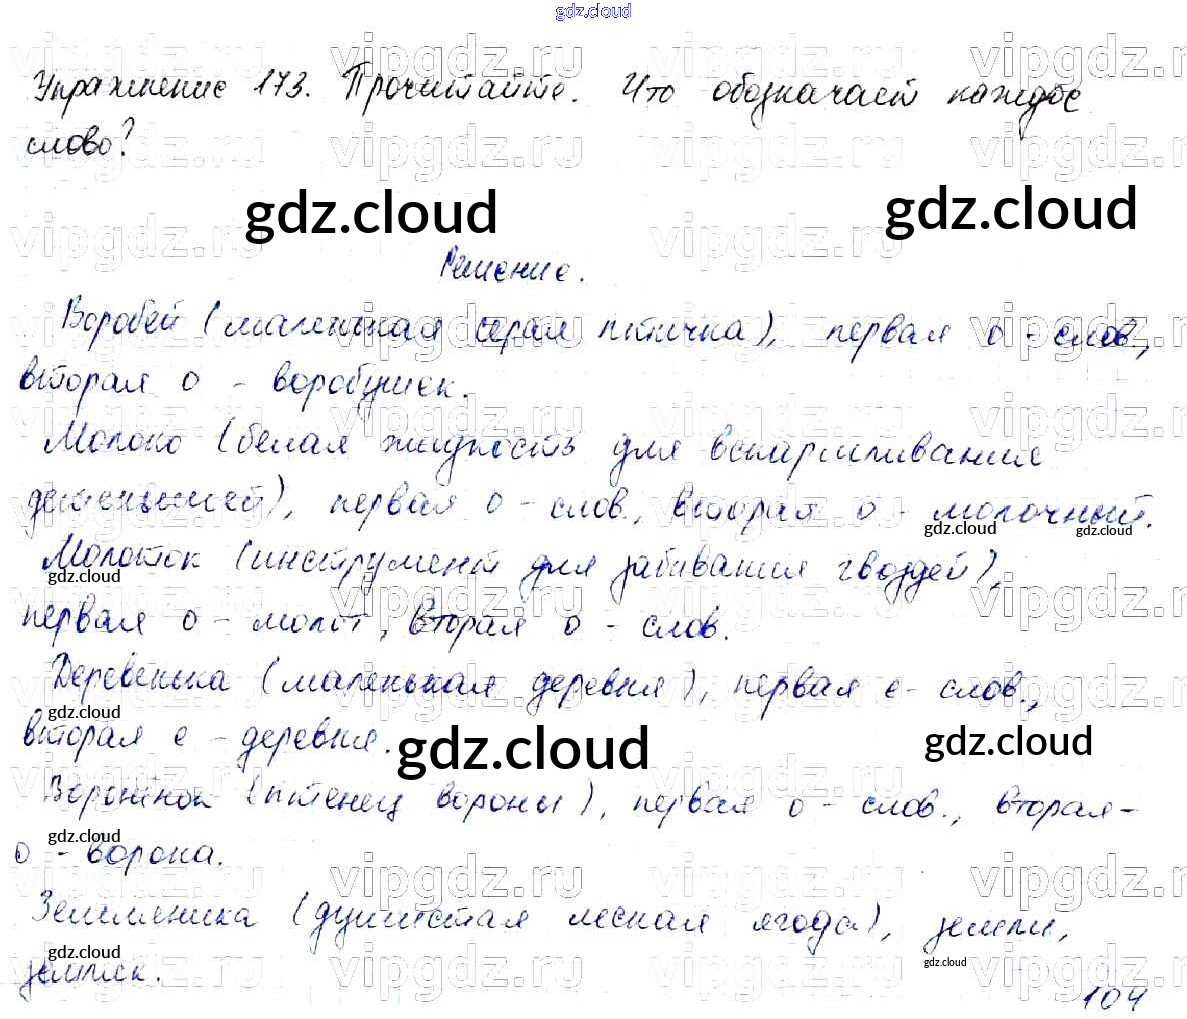 gdz.cloud
Упражнение 173. Прочитайте. Что обозначает каждое
слово?
gdz.cloud gdz.cloud
Решение.
Воробей (маленькая серая птичка), первая о - слов.,
вторая о - воробушек.
Молоко (белая жидкость для вскармливания
детенышей), первая о - слов., вторая о - молочный.
gdz.cloud gdz.cloud
Молоток (инструмент для забивания гвоздей),
gdz.cloud
первая о - молот, вторая о - слов.
Деревенька (маленькая деревня), первая е - слов.,
gdz.cloud
вторая е - деревня.
gdz.cloud gdz.cloud
Воронёнок (птенец вороны), первая о - слов., вторая -
gdz.cloud
о - ворона.
Земляника (душистая лесная ягода), земли,
gdz.cloud gdz.cloud
104